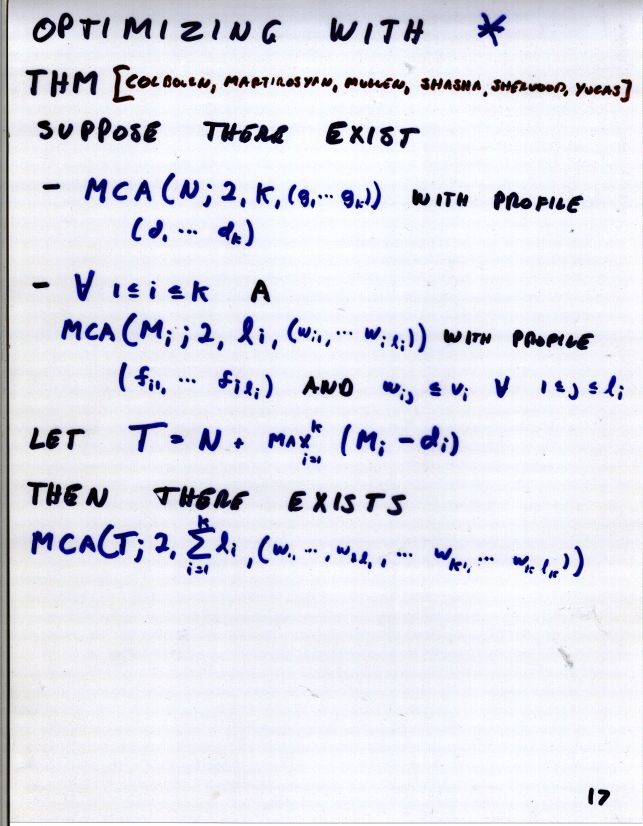 OPTIMIZING WITH *
THM [COLBOURN, MARTIROSYAN, MULLEN, SHASHA, SHERWOOD, YUCAS]
SUPPOSE THERE EXIST
- MCA(N; 2, K, (g₁ ... gₖ)) WITH PROFILE
(d₁ ... dₖ)
- ∀ 1≤i≤K A
MCA(Mᵢ; 2, lᵢ, (wᵢ₁, ... wᵢₗᵢ)) WITH PROFILE
(fᵢ₁, ... fᵢₗᵢ) AND wᵢⱼ ≤ vᵢ ∀ 1≤j≤lᵢ
LET T = N + MAXᵢ₌₁ᵏ (Mᵢ - dᵢ)
THEN THERE EXISTS
MCA(T; 2, Σᵢ₌₁ᵏ lᵢ, (w₁₁ ..., w₁ₗ₁, ... wₖ₁, ... wₖₗₖ))
17